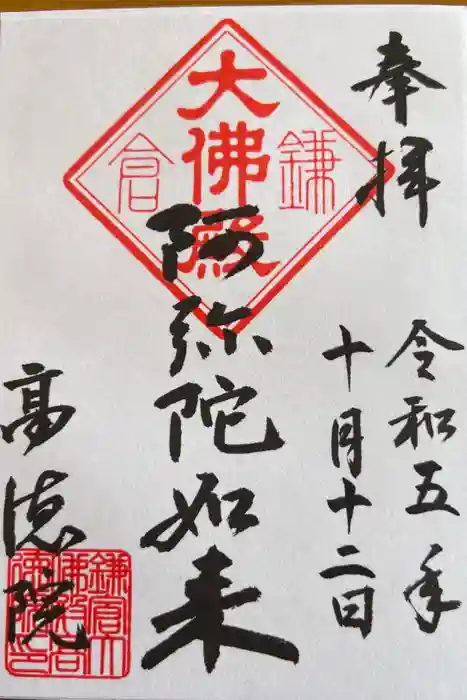 奉拝
令和五年
十月十二日
鎌倉
大佛殿
阿弥陀如来
高徳院